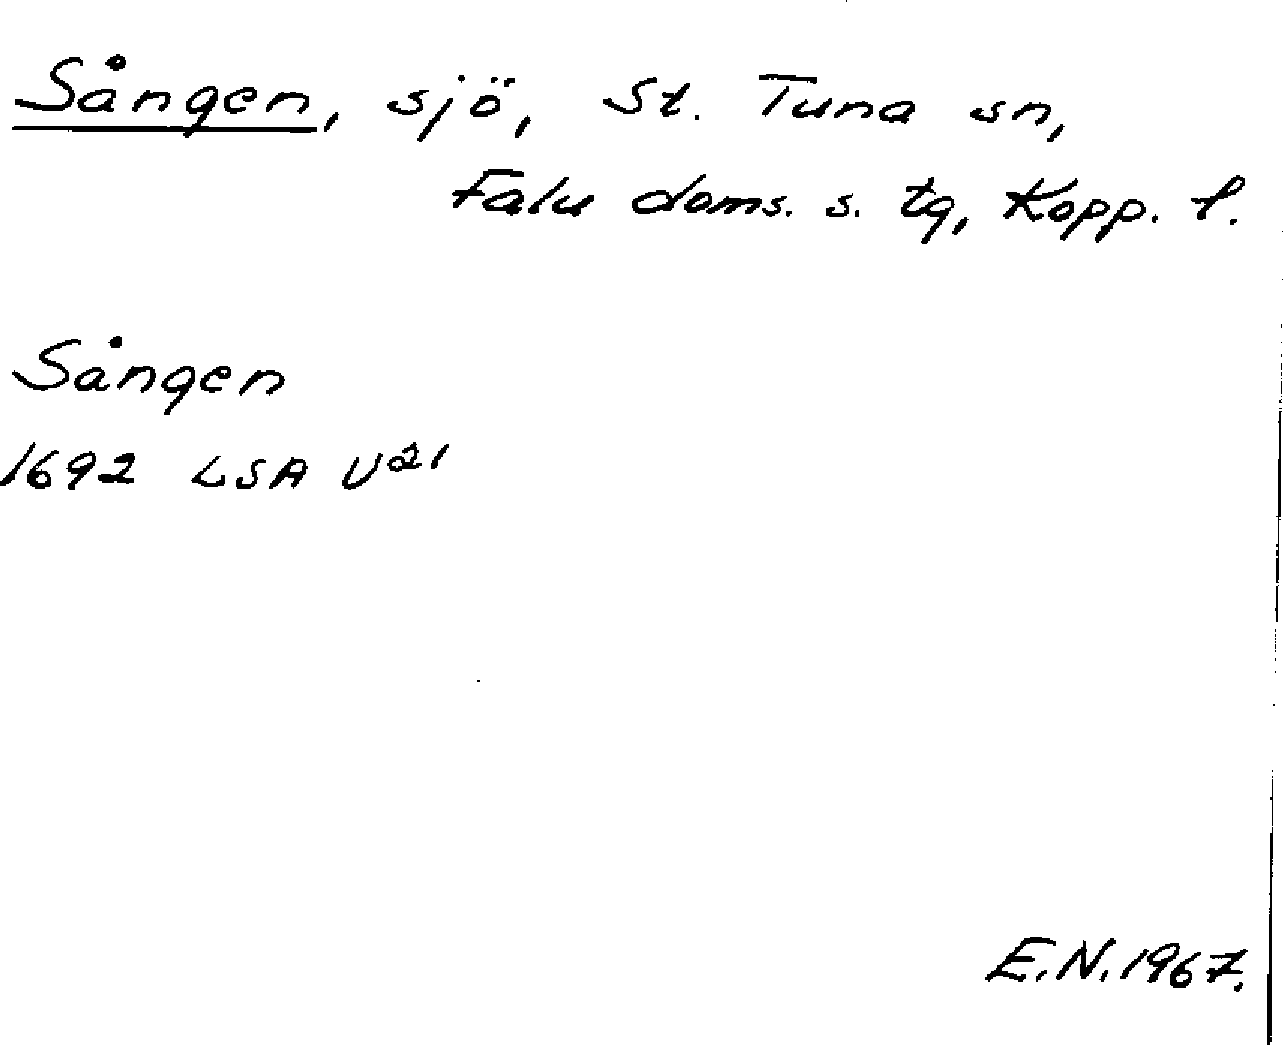 Sången, sjö, St. Tuna sn,
Falu doms. s. tg, Kopp. l.
Sången
1692 LSA U²¹
E.N. 1967.